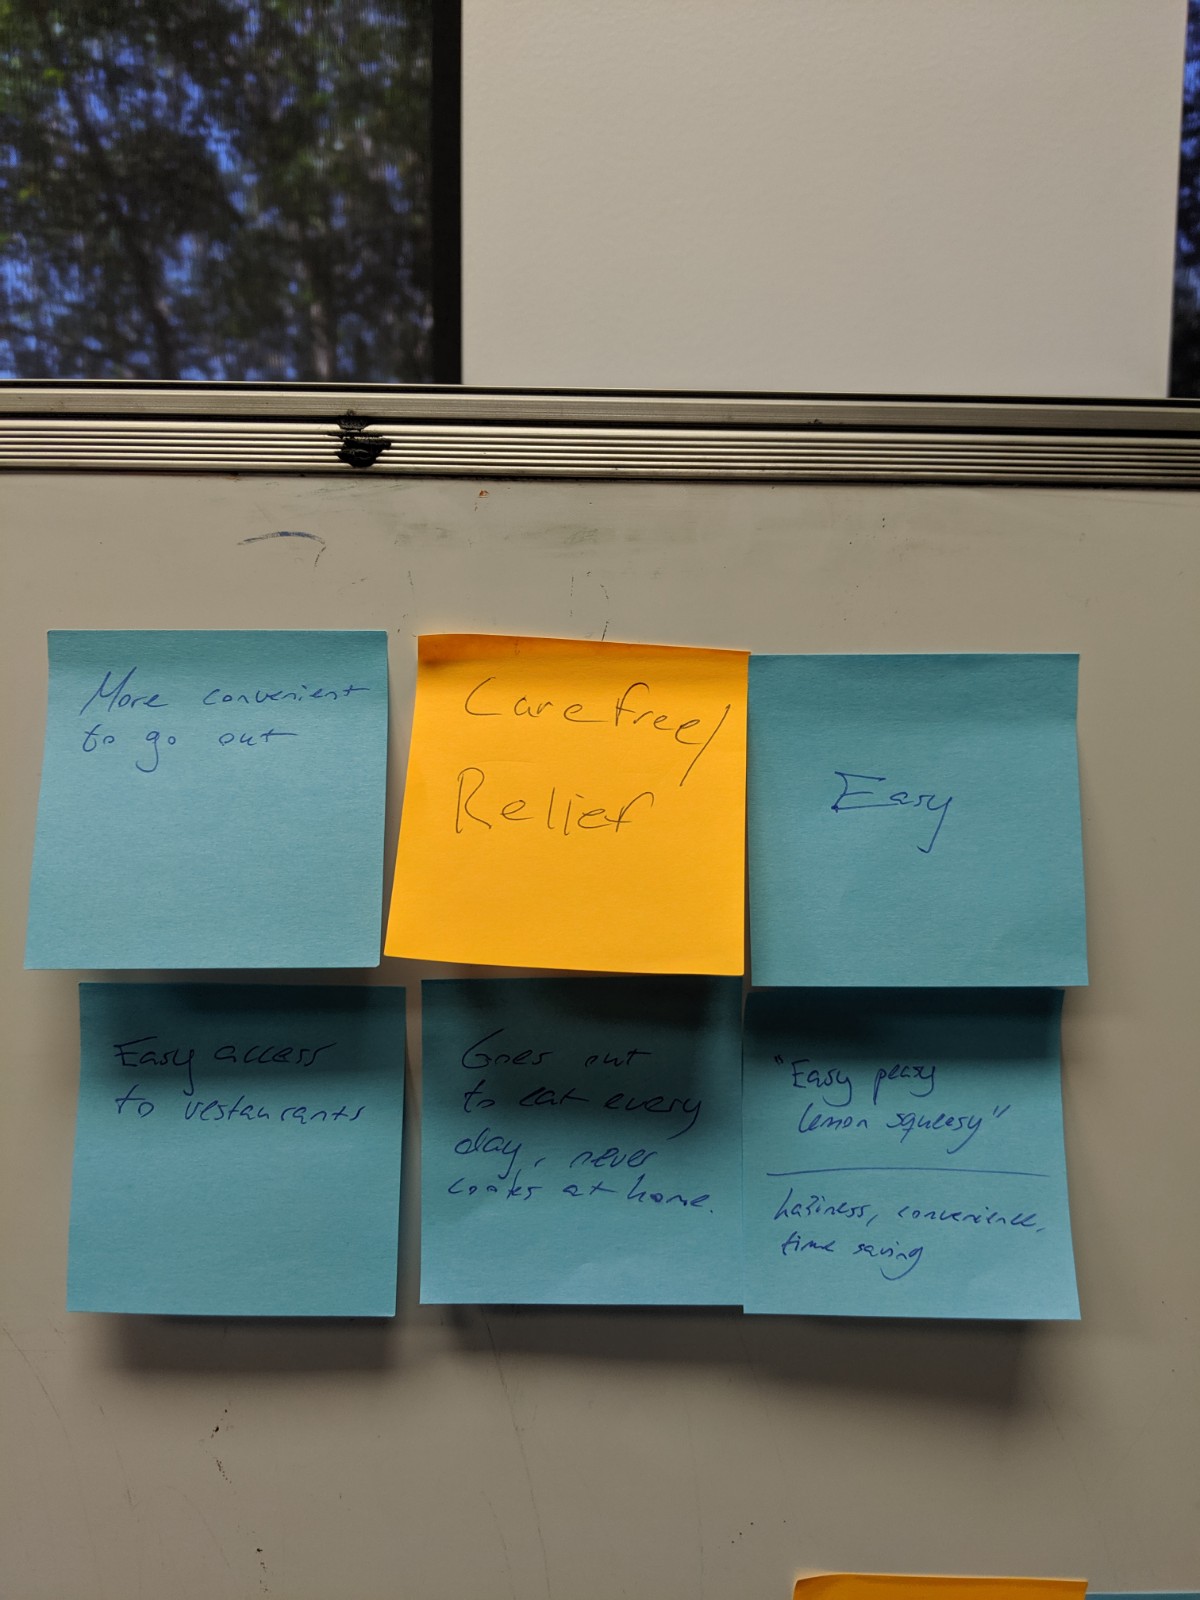 More convenient
to go out
Carefree/
Relief
Easy
Easy access
to restaurants
Goes out
to eat every
day, never
cooks at home.
"Easy peasy
lemon squeasy"
haziness, convenience,
time saving